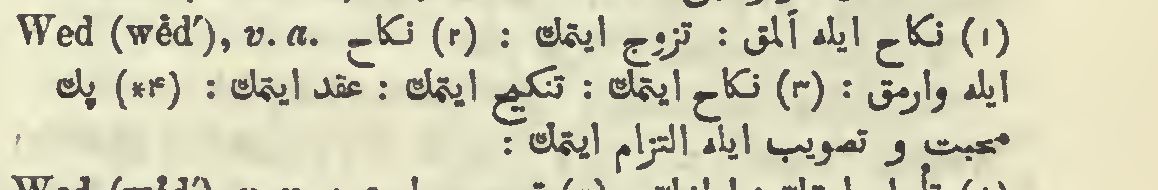 Wed (wĕd′), v. a. (۱) نكاح ايله آلمق : تزوج ايتمك : (۲) نكاح
ايله وارمق : (۳) نكاح ايتمك : تنكيح ايتمك : عقد ايتمك : (۴*) پك
محبت و تصويب ايله التزام ايتمك :